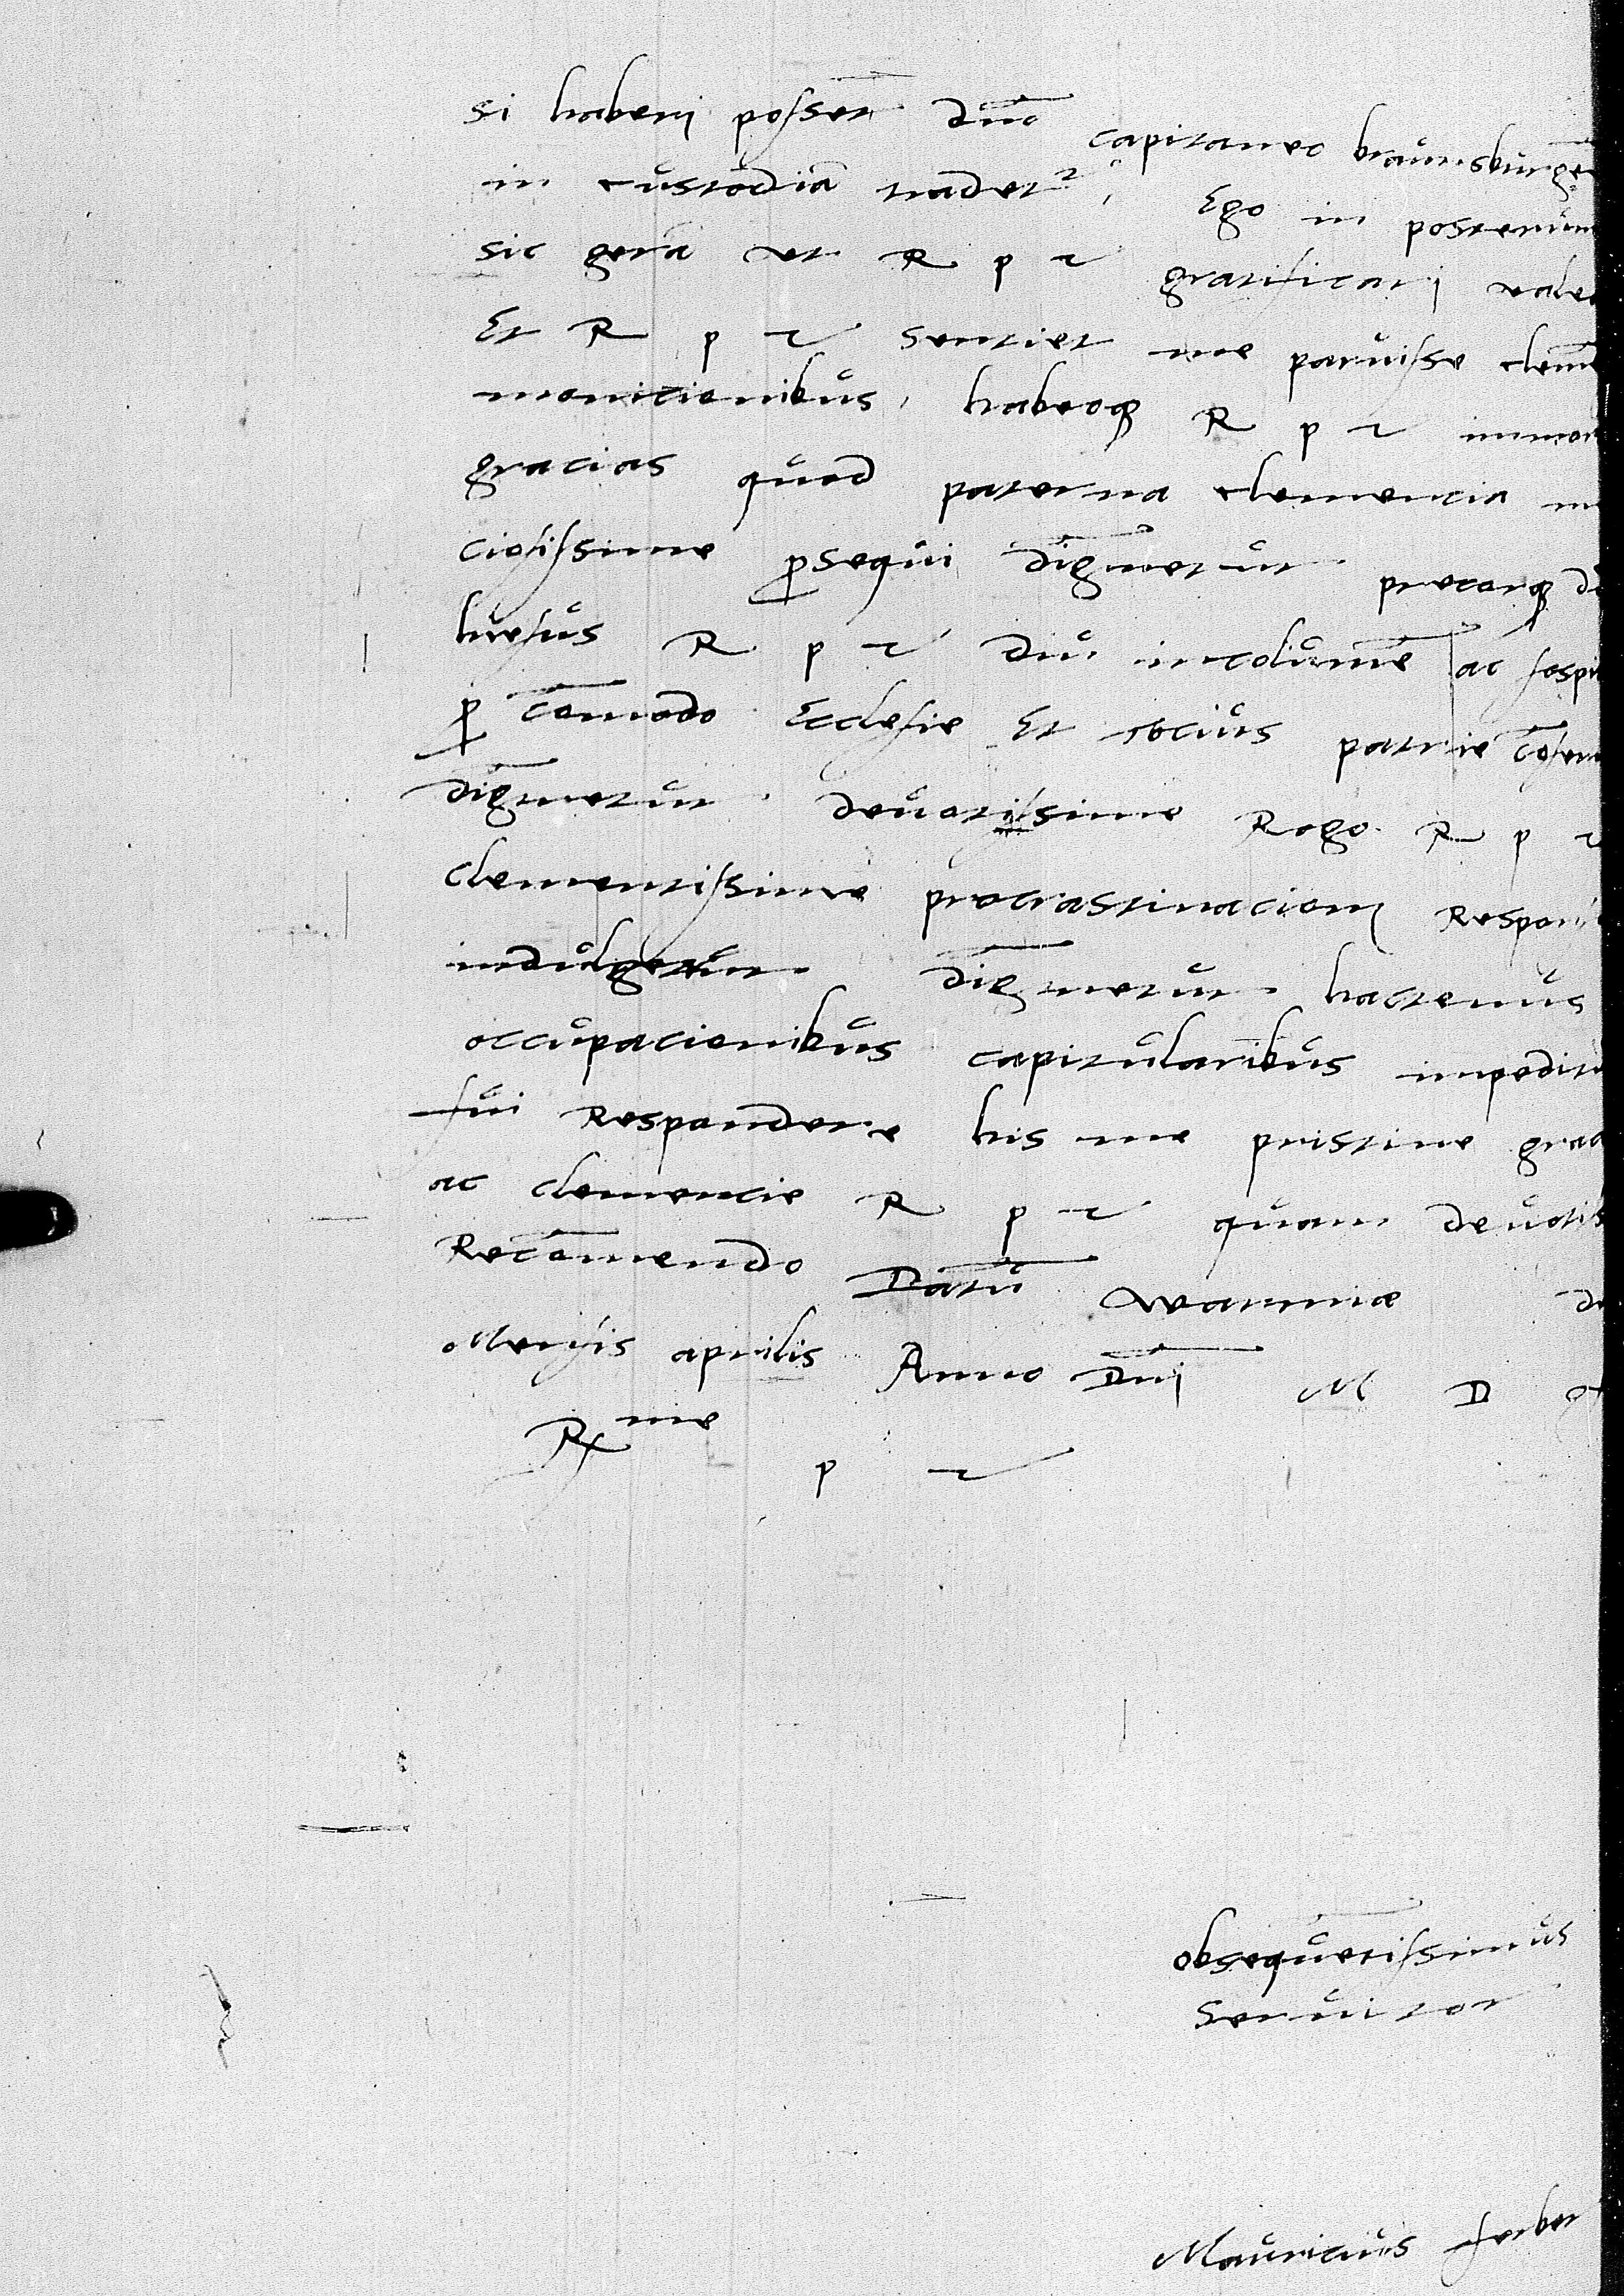 si haberi posset dno̅ capitaneo braunsburgen̅
in custodia̅ tradet², Ego in posterum
sic gera̅ ut R p t gratificari vale
Et R p t sentiet me paruisse clem
monicionibus, habeoq₃ R p t immor
gracias quod paterna clemencia m
ciosissime ꝓsequi dignetur precorq₃ d
hiesus R p t diu incolume̅ ac sospi
ꝓ co̅modo Ecclesie Et tocius patrie co̅ser
dignetur. devotissime Rogo R p t
clementissime procrastinacioni Respon
indulgetur dignetur hactenus
occupacionibus capitularibus impeditu
fui Respondere his me pristine grac
ac clemencie R p t quam devotis
Reco̅mendo Datu̅ warmiae di
Mensis aprilis Anno Dni M D
Rme p t
obseque̅tissimus
Seruitor
Mauricius ferber